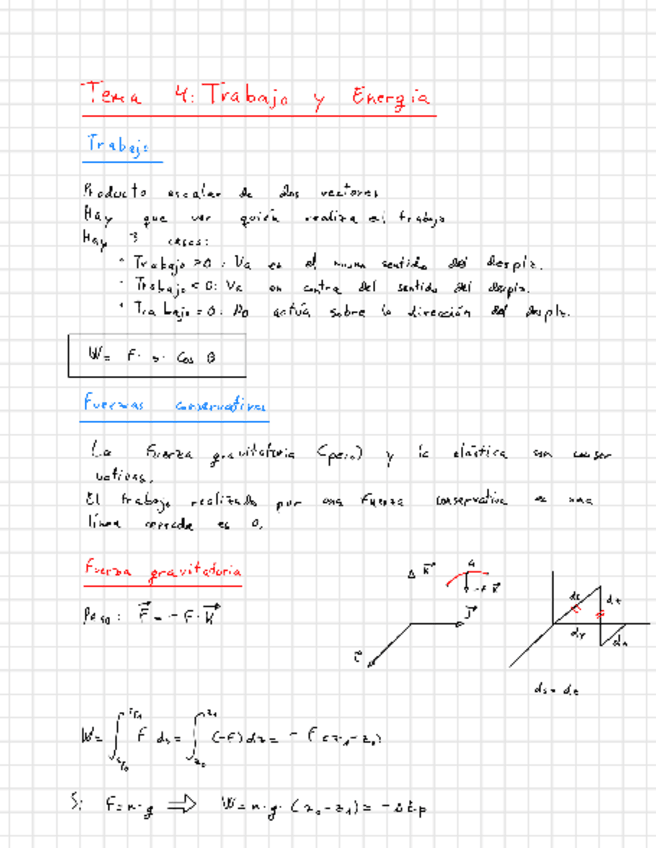 Tema 4: Trabajo y Energía
Trabajo
Producto escalar de dos vectores
Hay que ver quién realiza el trabajo
Hay 3 casos:
• Trabajo >0: Va en el mismo sentido del desplz.
• Trabajo <0: Va en contra del sentido del desplz.
• Trabajo = 0: No actúa sobre la dirección del desplz.
W = F · s · cos θ
Fuerzas conservativas
La Fuerza gravitatoria (peso) y la elástica son conser
vativas.
El trabajo realizado por una Fuerza conservativa es una
línea cerrada es 0.
Fuerza gravitatoria
Peso: F⃗ = -F · K⃗
K⃗
-F K⃗
J⃗
dz
dy
ds = dz
W = ∫ F ds = ∫ (-F) dz = -F (z₁ - z₀)
Si F = m · g ⟹ W = m · g · (z₀ - z₁) = -ΔEp